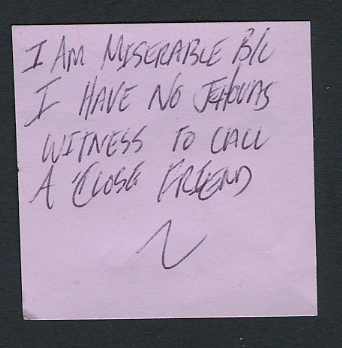 I AM MISERABLE B/C
I HAVE NO JEHOVAS
WITNESS TO CALL
A CLOSE FRIEND